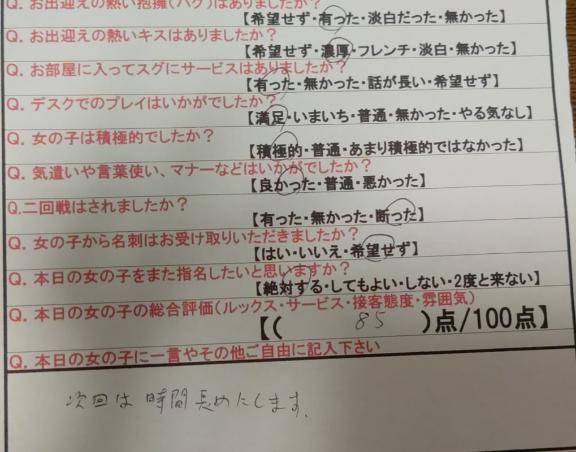 Q. お出迎えの熱い抱擁(ハグ)はありましたか?
【希望せず・有った・淡白だった・無かった】
Q. お出迎えの熱いキスはありましたか?
【希望せず・濃厚・フレンチ・淡白・無かった】
Q. お部屋に入ってスグにサービスはありましたか?
【有った・無かった・話が長い・希望せず】
Q. デスクでのプレイはいかがでしたか?
【満足・いまいち・普通・無かった・やる気なし】
Q. 女の子は積極的でしたか?
【積極的・普通・あまり積極的ではなかった】
Q. 気遣いや言葉使い、マナーなどはいかがでしたか?
【良かった・普通・悪かった】
Q.二回戦はされましたか?
【有った・無かった・断った】
Q. 女の子から名刺はお受け取りいただきましたか?
【はい・いいえ・希望せず】
Q. 本日の女の子をまた指名したいと思いますか?
【絶対する・してもよい・しない・2度と来ない】
Q. 本日の女の子の総合評価(ルックス・サービス・接客態度・雰囲気)
【( 85 )点/100点】
Q. 本日の女の子に一言やその他ご自由に記入下さい
次回は時間長めにします.